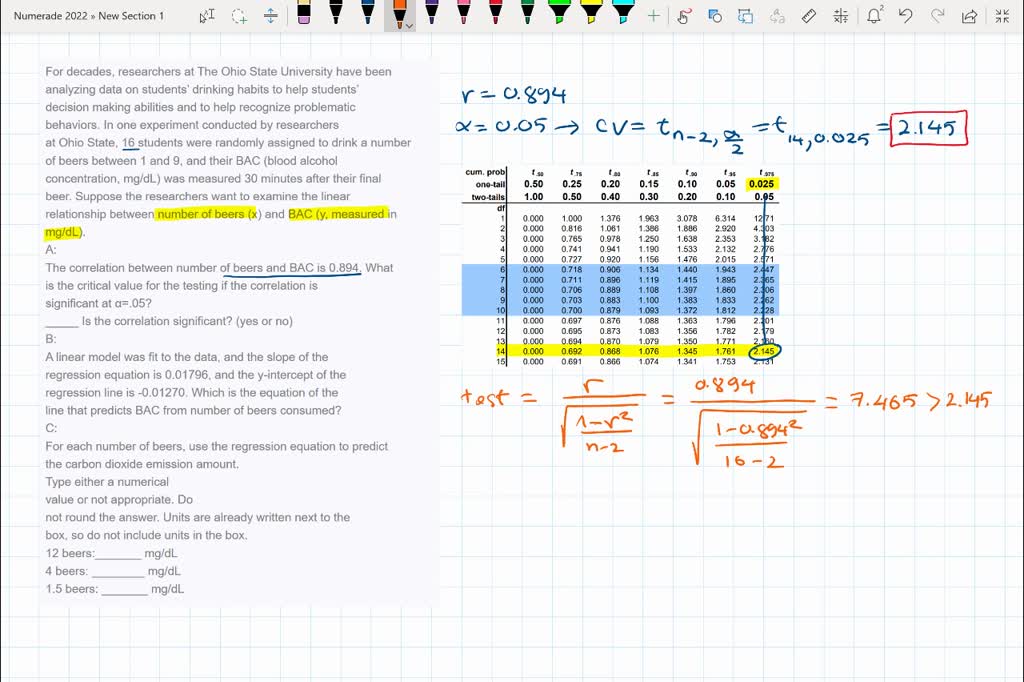 Numerade 2022 » New Section 1
For decades, researchers at The Ohio State University have been
analyzing data on students' drinking habits to help students'
decision making abilities and to help recognize problematic
behaviors. In one experiment conducted by researchers
at Ohio State, 16 students were randomly assigned to drink a number
of beers between 1 and 9, and their BAC (blood alcohol
concentration, mg/dL) was measured 30 minutes after their final
beer. Suppose the researchers want to examine the linear
relationship between number of beers (x) and BAC (y, measured in
mg/dL).
A:
The correlation between number of beers and BAC is 0.894. What
is the critical value for the testing if the correlation is
significant at α=.05?
_____ Is the correlation significant? (yes or no)
B:
A linear model was fit to the data, and the slope of the
regression equation is 0.01796, and the y-intercept of the
regression line is -0.01270. Which is the equation of the
line that predicts BAC from number of beers consumed?
C:
For each number of beers, use the regression equation to predict
the carbon dioxide emission amount.
Type either a numerical
value or not appropriate. Do
not round the answer. Units are already written next to the
box, so do not include units in the box.
12 beers:_______ mg/dL
4 beers: ________ mg/dL
1.5 beers: _______ mg/dL
r = 0.894
α = 0.05 → CV = t n-2, α/2 = t 14, 0.025 = 2.145
cum. prob t.50 t.75 t.80 t.85 t.90 t.95 t.975
one-tail 0.50 0.25 0.20 0.15 0.10 0.05 0.025
two-tails 1.00 0.50 0.40 0.30 0.20 0.10 0.05
df
1 0.000 1.000 1.376 1.963 3.078 6.314 12.71
2 0.000 0.816 1.061 1.386 1.886 2.920 4.303
3 0.000 0.765 0.978 1.250 1.638 2.353 3.182
4 0.000 0.741 0.941 1.190 1.533 2.132 2.776
5 0.000 0.727 0.920 1.156 1.476 2.015 2.571
6 0.000 0.718 0.906 1.134 1.440 1.943 2.447
7 0.000 0.711 0.896 1.119 1.415 1.895 2.365
8 0.000 0.706 0.889 1.108 1.397 1.860 2.306
9 0.000 0.703 0.883 1.100 1.383 1.833 2.262
10 0.000 0.700 0.879 1.093 1.372 1.812 2.228
11 0.000 0.697 0.876 1.088 1.363 1.796 2.201
12 0.000 0.695 0.873 1.083 1.356 1.782 2.179
13 0.000 0.694 0.870 1.079 1.350 1.771 2.160
14 0.000 0.692 0.868 1.076 1.345 1.761 2.145
15 0.000 0.691 0.866 1.074 1.341 1.753 2.131
test = r / √((1-r²)/(n-2)) = 0.894 / √((1-0.894²)/(16-2)) = 7.465 > 2.145